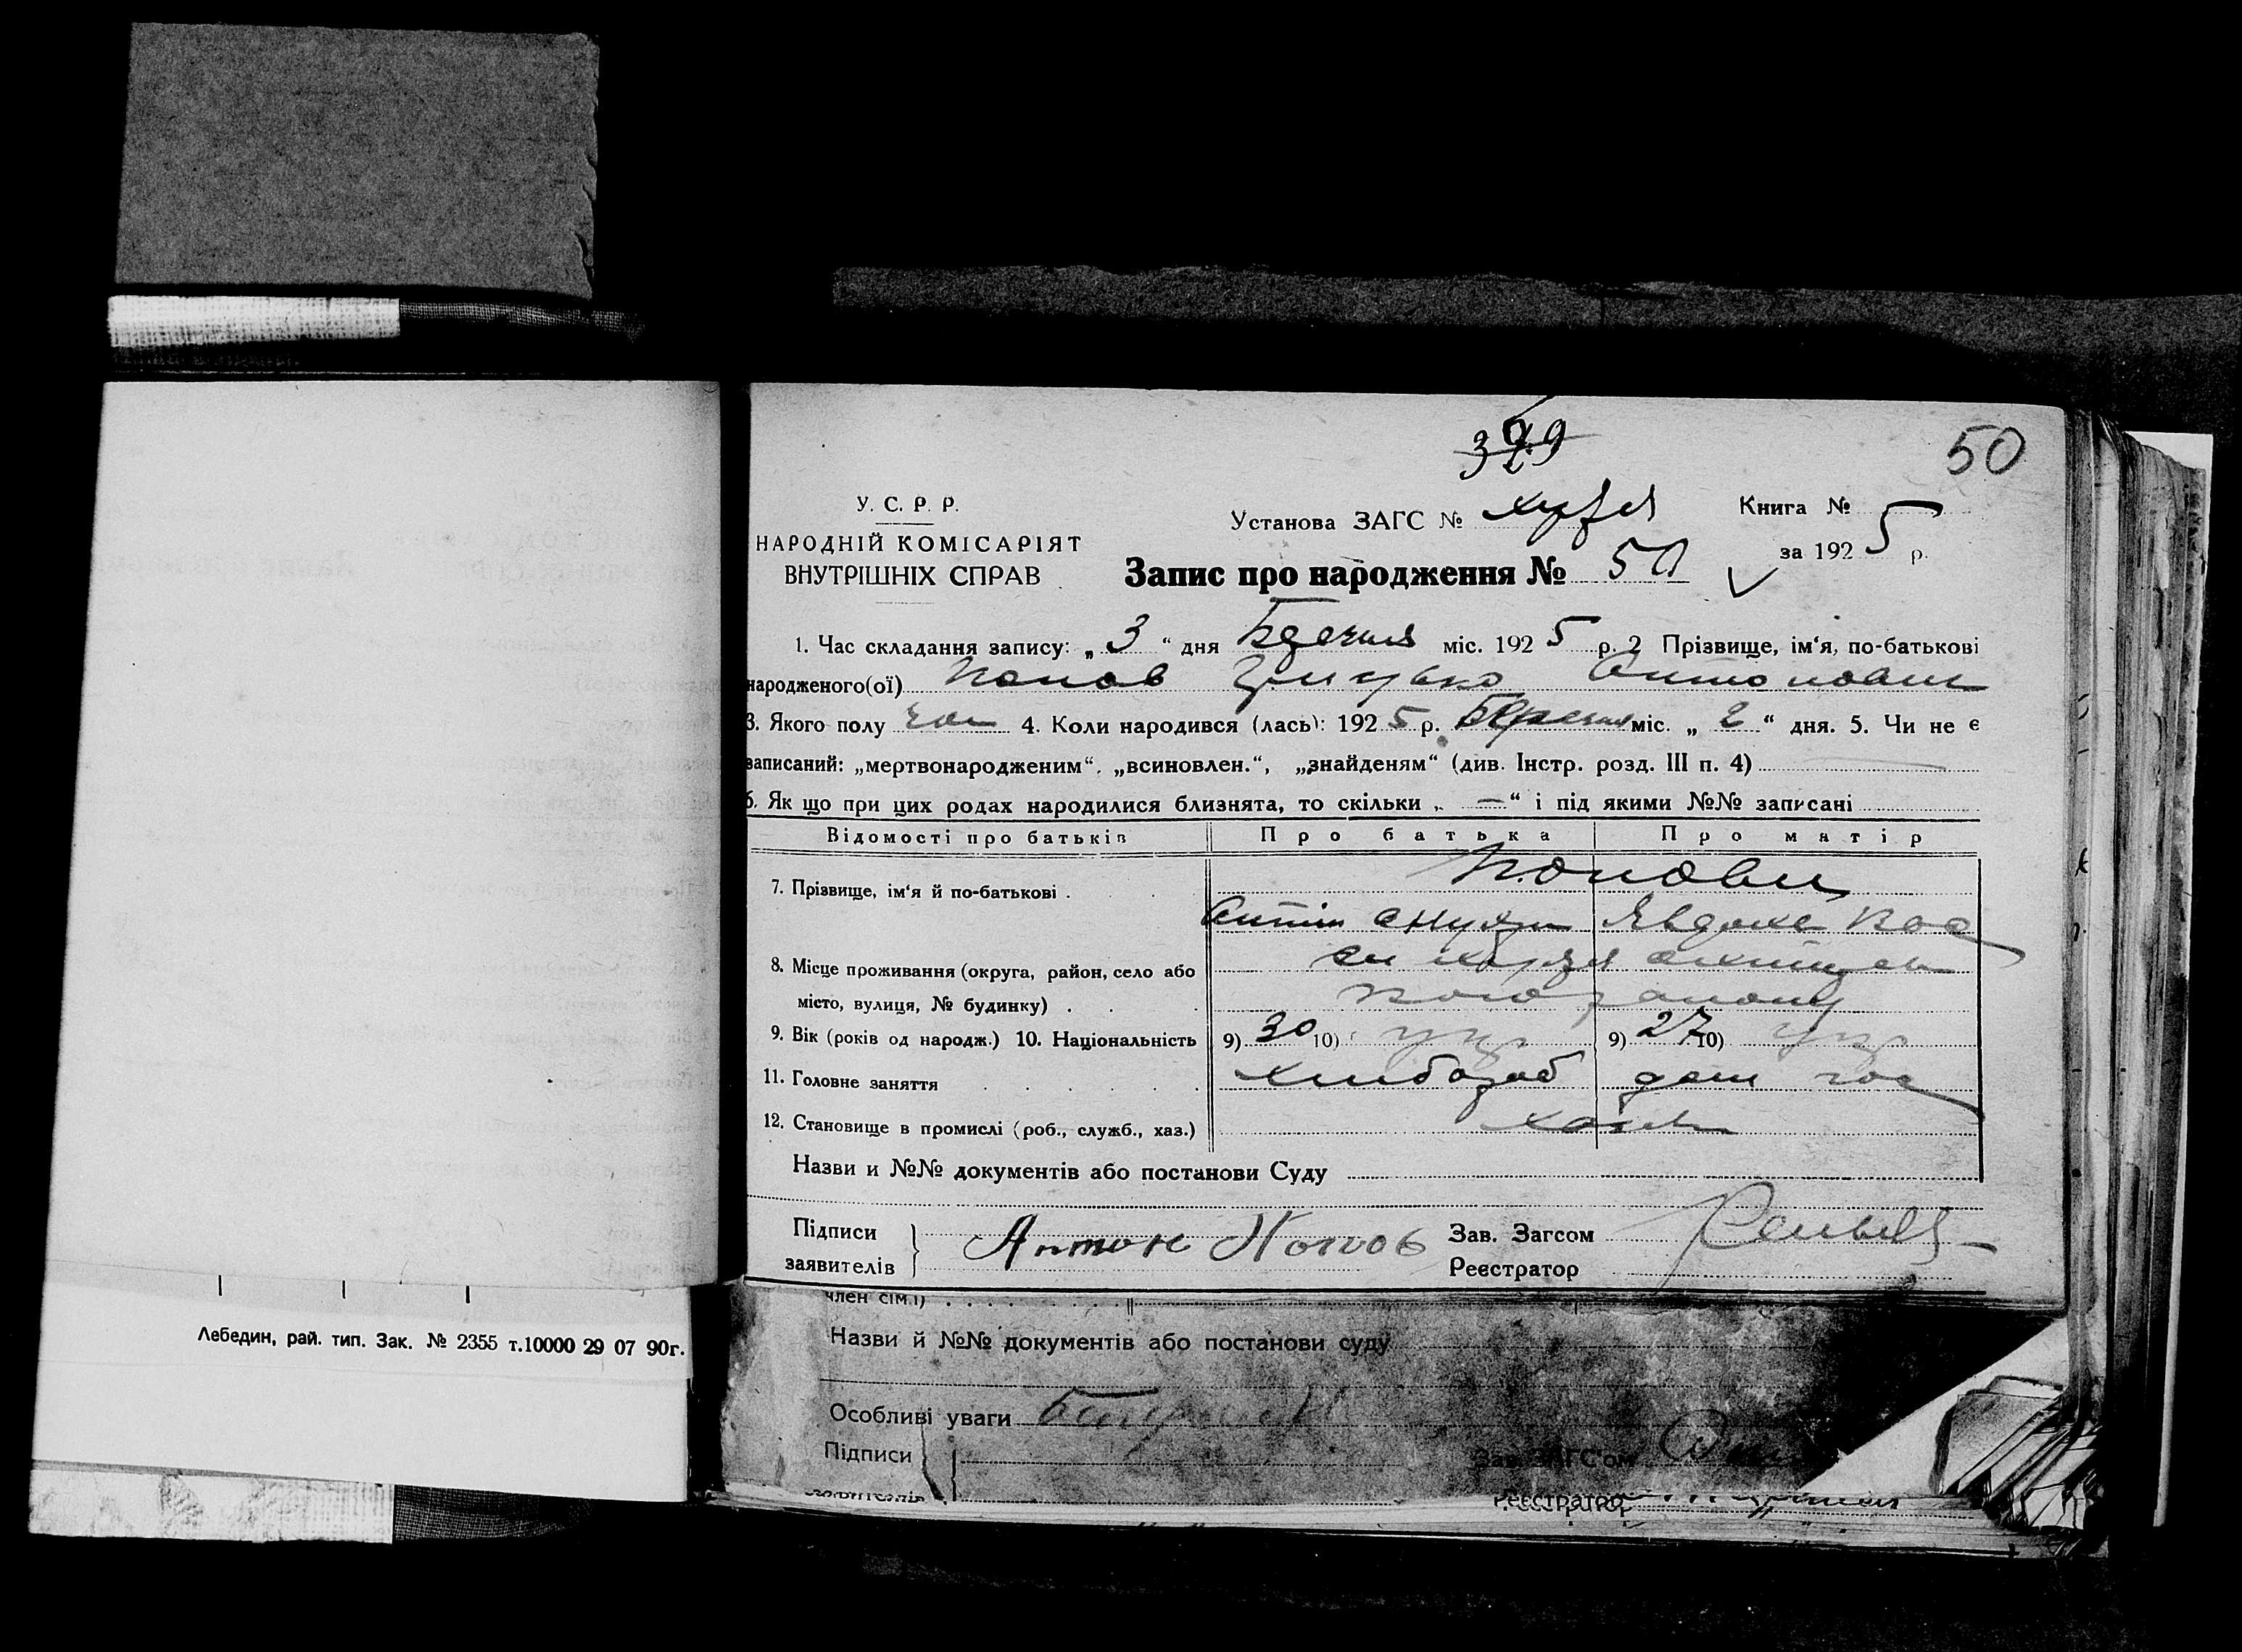 50
У. С. Р. Р.
Установа ЗАГС №
Книга № 5
НАРОДНІЙ КОМІСАРІЯТ
ВНУТРІШНІХ СПРАВ
за 1925 р.
Запис про народження № 50
1. Час складання запису: „ 3 “ дня Березня міс. 1925 р. 2 Прізвище, ім‘я, по-батькові
народженого(ої) Попов Грицько Антонович
3. Якого полу чол 4. Коли народився (лась): 1925 р. Березня міс. „ 2 “ дня. 5. Чи не є
записаний: „мертвонародженим“, „всиновлен.“, „знайденям“ (див. Інстр. розд. III п. 4)
6. Як що при цих родах народилися близнята, то скільки „ — “ і під якими №№ записані
Відомості про батьків Про батька Про матір
7. Прізвище, ім‘я й по-батькові . Попови
Антін Явдоха
8. Місце проживання (округа, район, село або
місто, вулиця, № будинку) . кого району
9. Вік (років од народж.) 10. Національність 9) 30 10) укр 9) 27 10) укр
11. Головне заняття хлібороб дом гос
12. Становище в промислі (роб., служб., хаз.) хазяї
Назви и №№ документів або постанови Суду
Підписи
заявителів
Антон Попов
Зав. Загсом
Реєстратор
член сім.ї)
Лебедин, рай. тип. Зак. № 2355 т.10000 29 07 90г.
Назви й №№ документів або постанови суду
Особливі уваги
Підписи
Зав. ЗАГС'ом
Реєстратор